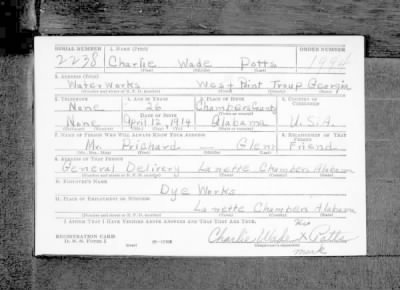 SERIAL NUMBER 1. NAME (Print) ORDER NUMBER
2238 Charlie Wade Potts 1994
(First) (Middle) (Last)
2. ADDRESS (Print)
Water Works West Point Troup Georgia
3. TELEPHONE 4. AGE IN YEARS 5. PLACE OF BIRTH 6. COUNTRY OF CITIZENSHIP
None 26 Chambers County
DATE OF BIRTH
None April 12, 1914 Alabama U.S.A.
(Exchange) (Number) (Mo.) (Day) (Yr.) (State or country)
7. NAME OF PERSON WHO WILL ALWAYS KNOW YOUR ADDRESS 8. RELATIONSHIP OF THAT PERSON
Mr. Prichard Glenn Friend
(Mr., Mrs., Miss) (First) (Middle) (Last)
9. ADDRESS OF THAT PERSON
General Delivery Lanette Chambers Alabama
10. EMPLOYER'S NAME
Dye Works
11. PLACE OF EMPLOYMENT OR BUSINESS
Lanette Chambers Alabama
I AFFIRM THAT I HAVE VERIFIED ABOVE ANSWERS AND THAT THEY ARE TRUE.
REGISTRATION CARD
D. S. S. Form 1
his
Charlie Wade X Potts
mark